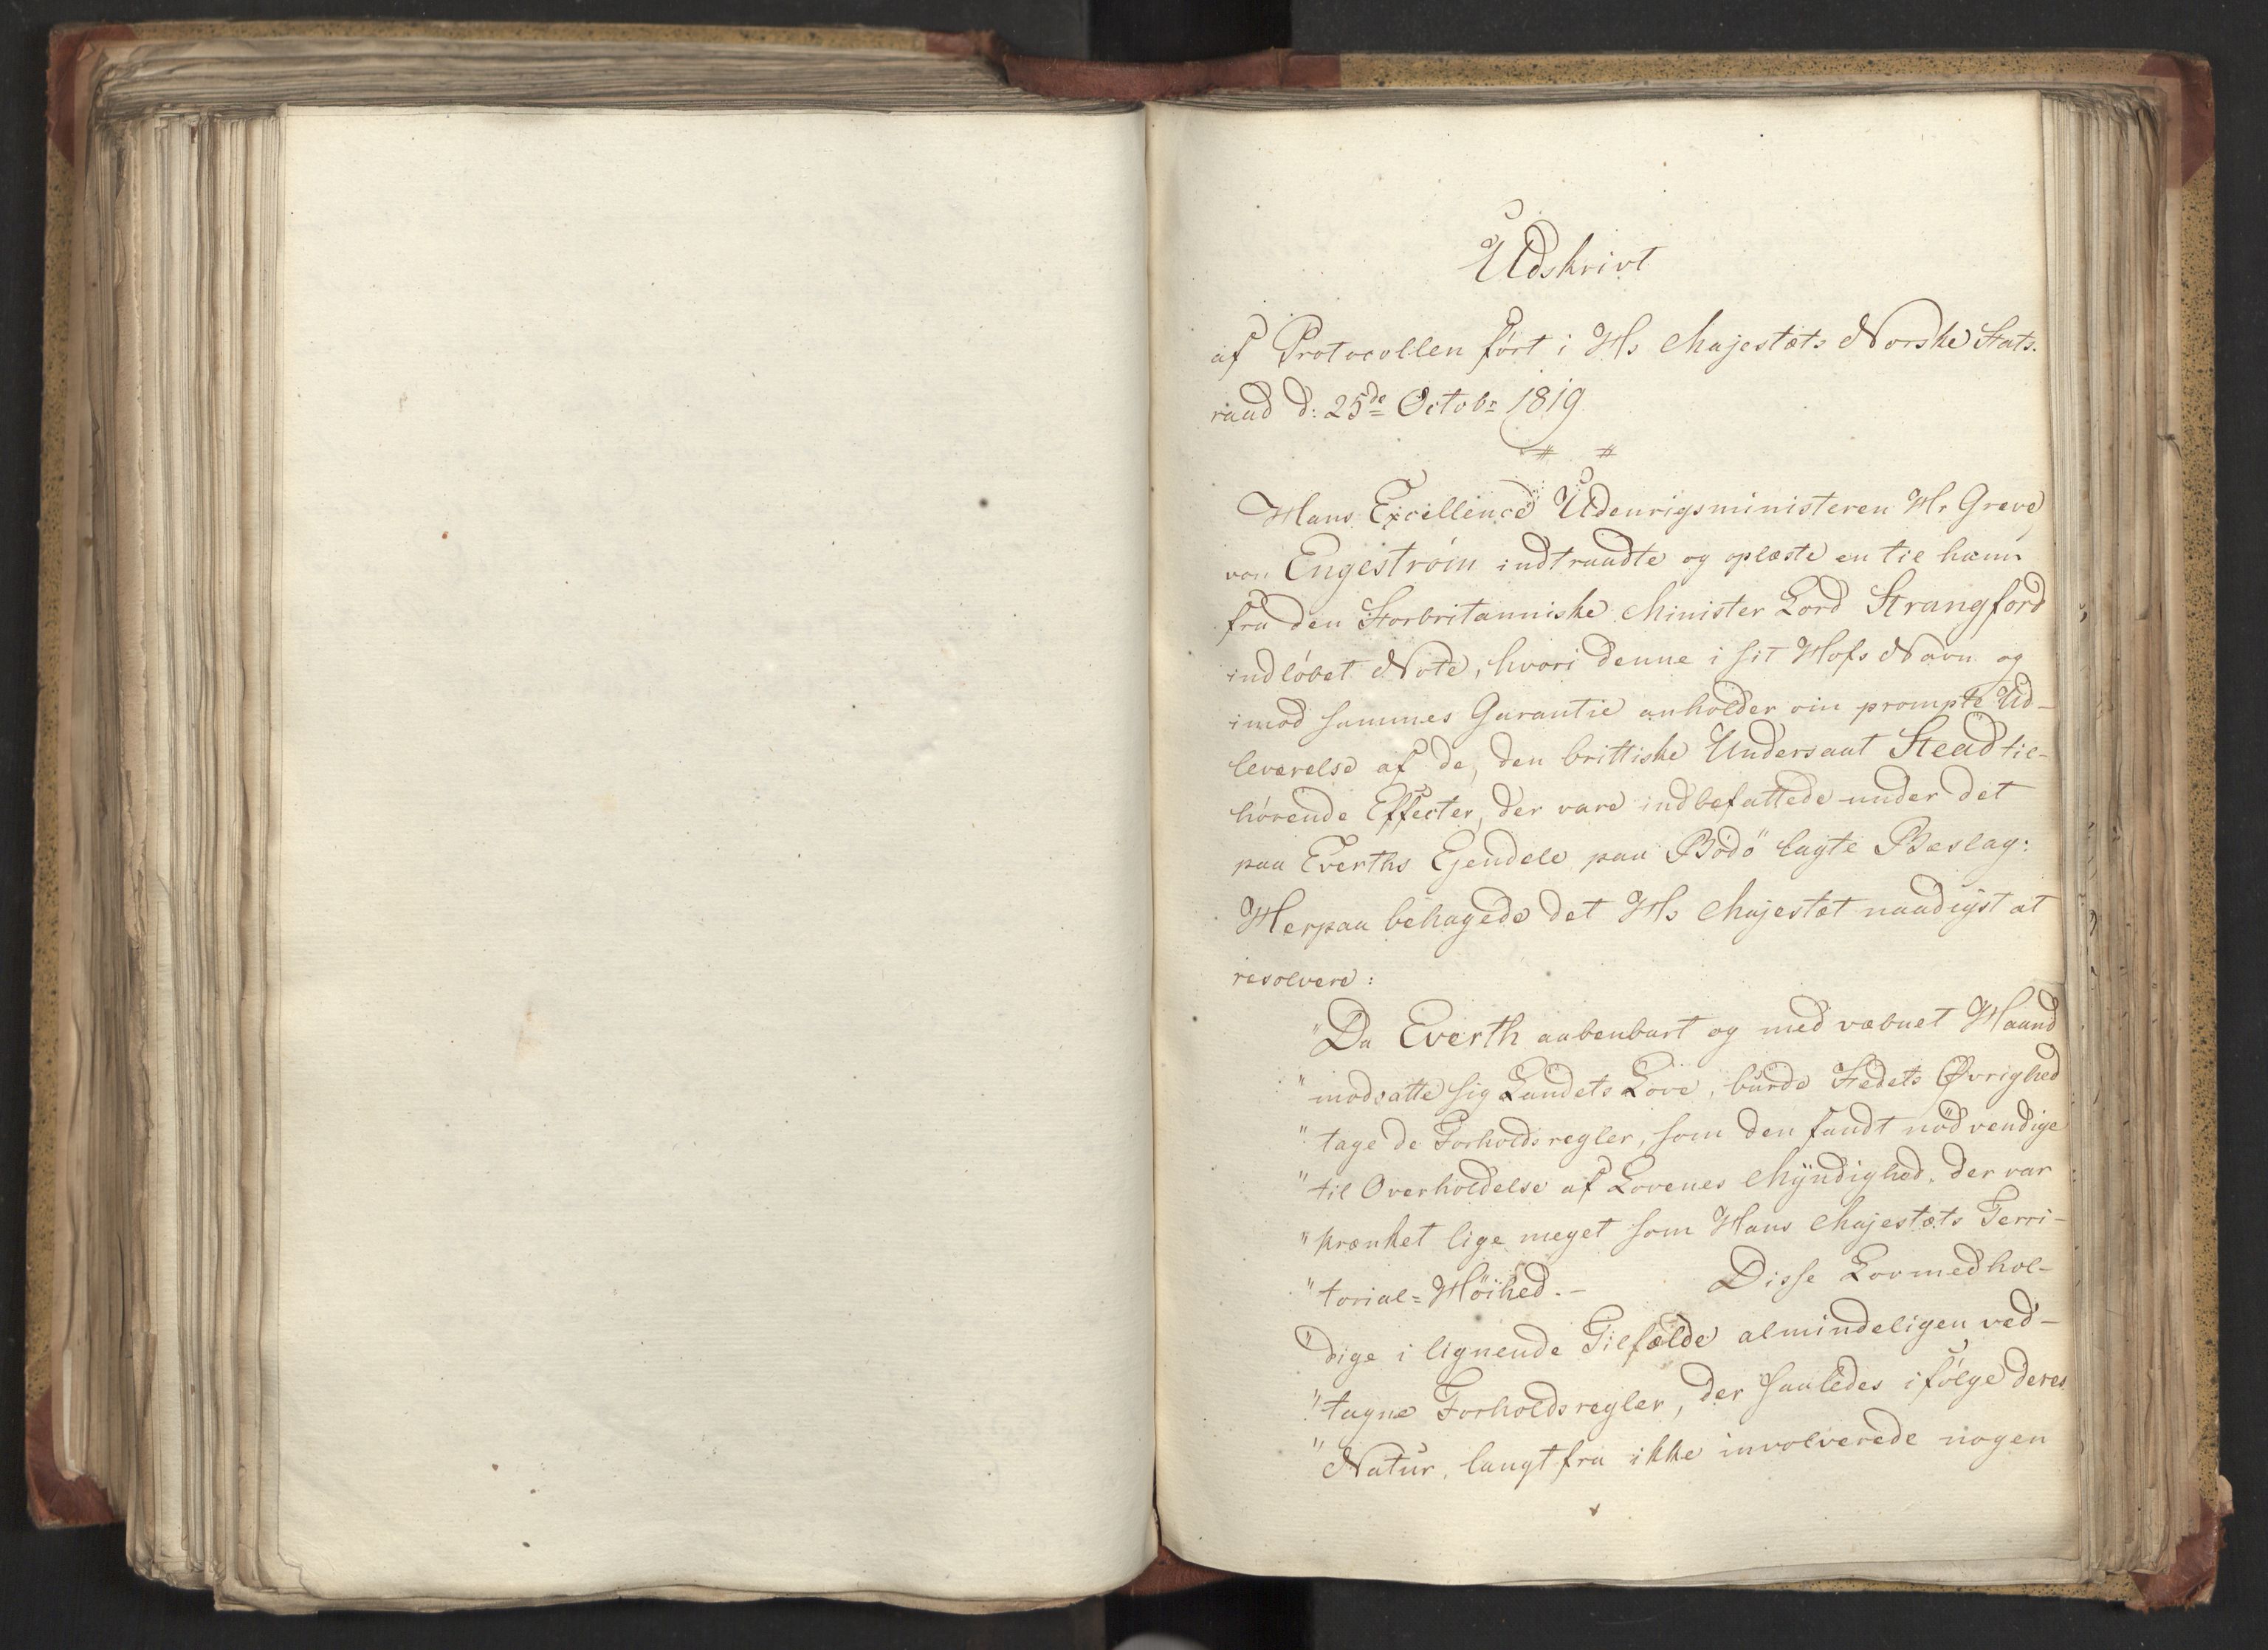 Udskrivt
af Protocollen ført i Hs Majestæts Norske Stats-
raad d: 25de Octobr 1819
Hans Excellence Udenrigsministeren Hr Greve
von Engeström indtraadte og oplæste en til ham
fra den Storbritanniske Minister Lord Strangford
indløbet Note, hvori denne i sit Hofs Navn og
imod sammes Garantie anholder om prompte Ud-
leverelse af de, den brittiske Undersaat Stead til-
hørende Effecter, der vare indbefattede under det
paa Everths Ejendele paa Bodö lagte Beslag:
Herpaa behagede det Hs Majestæt naadigst at
resolvere:
"Da Everth aabenbart og med væbnet Haand
"modsatte sig Landets Love, burde Stedets Øvrighed
"tage de Forholdsregler, som den fandt nödvendige
"til Overholdelse af Lovenes Myndighed, der var
"krænket lige meget som Hans Majestæts Terri-
"torial=Höihed.- Disse Lovmedhol-
"dige i lignende Tilfælde almindeligen ved-
"tagne Forholdsregler, der saaledes ifølge deres
"Natur, langtfra ikke involverede nogen